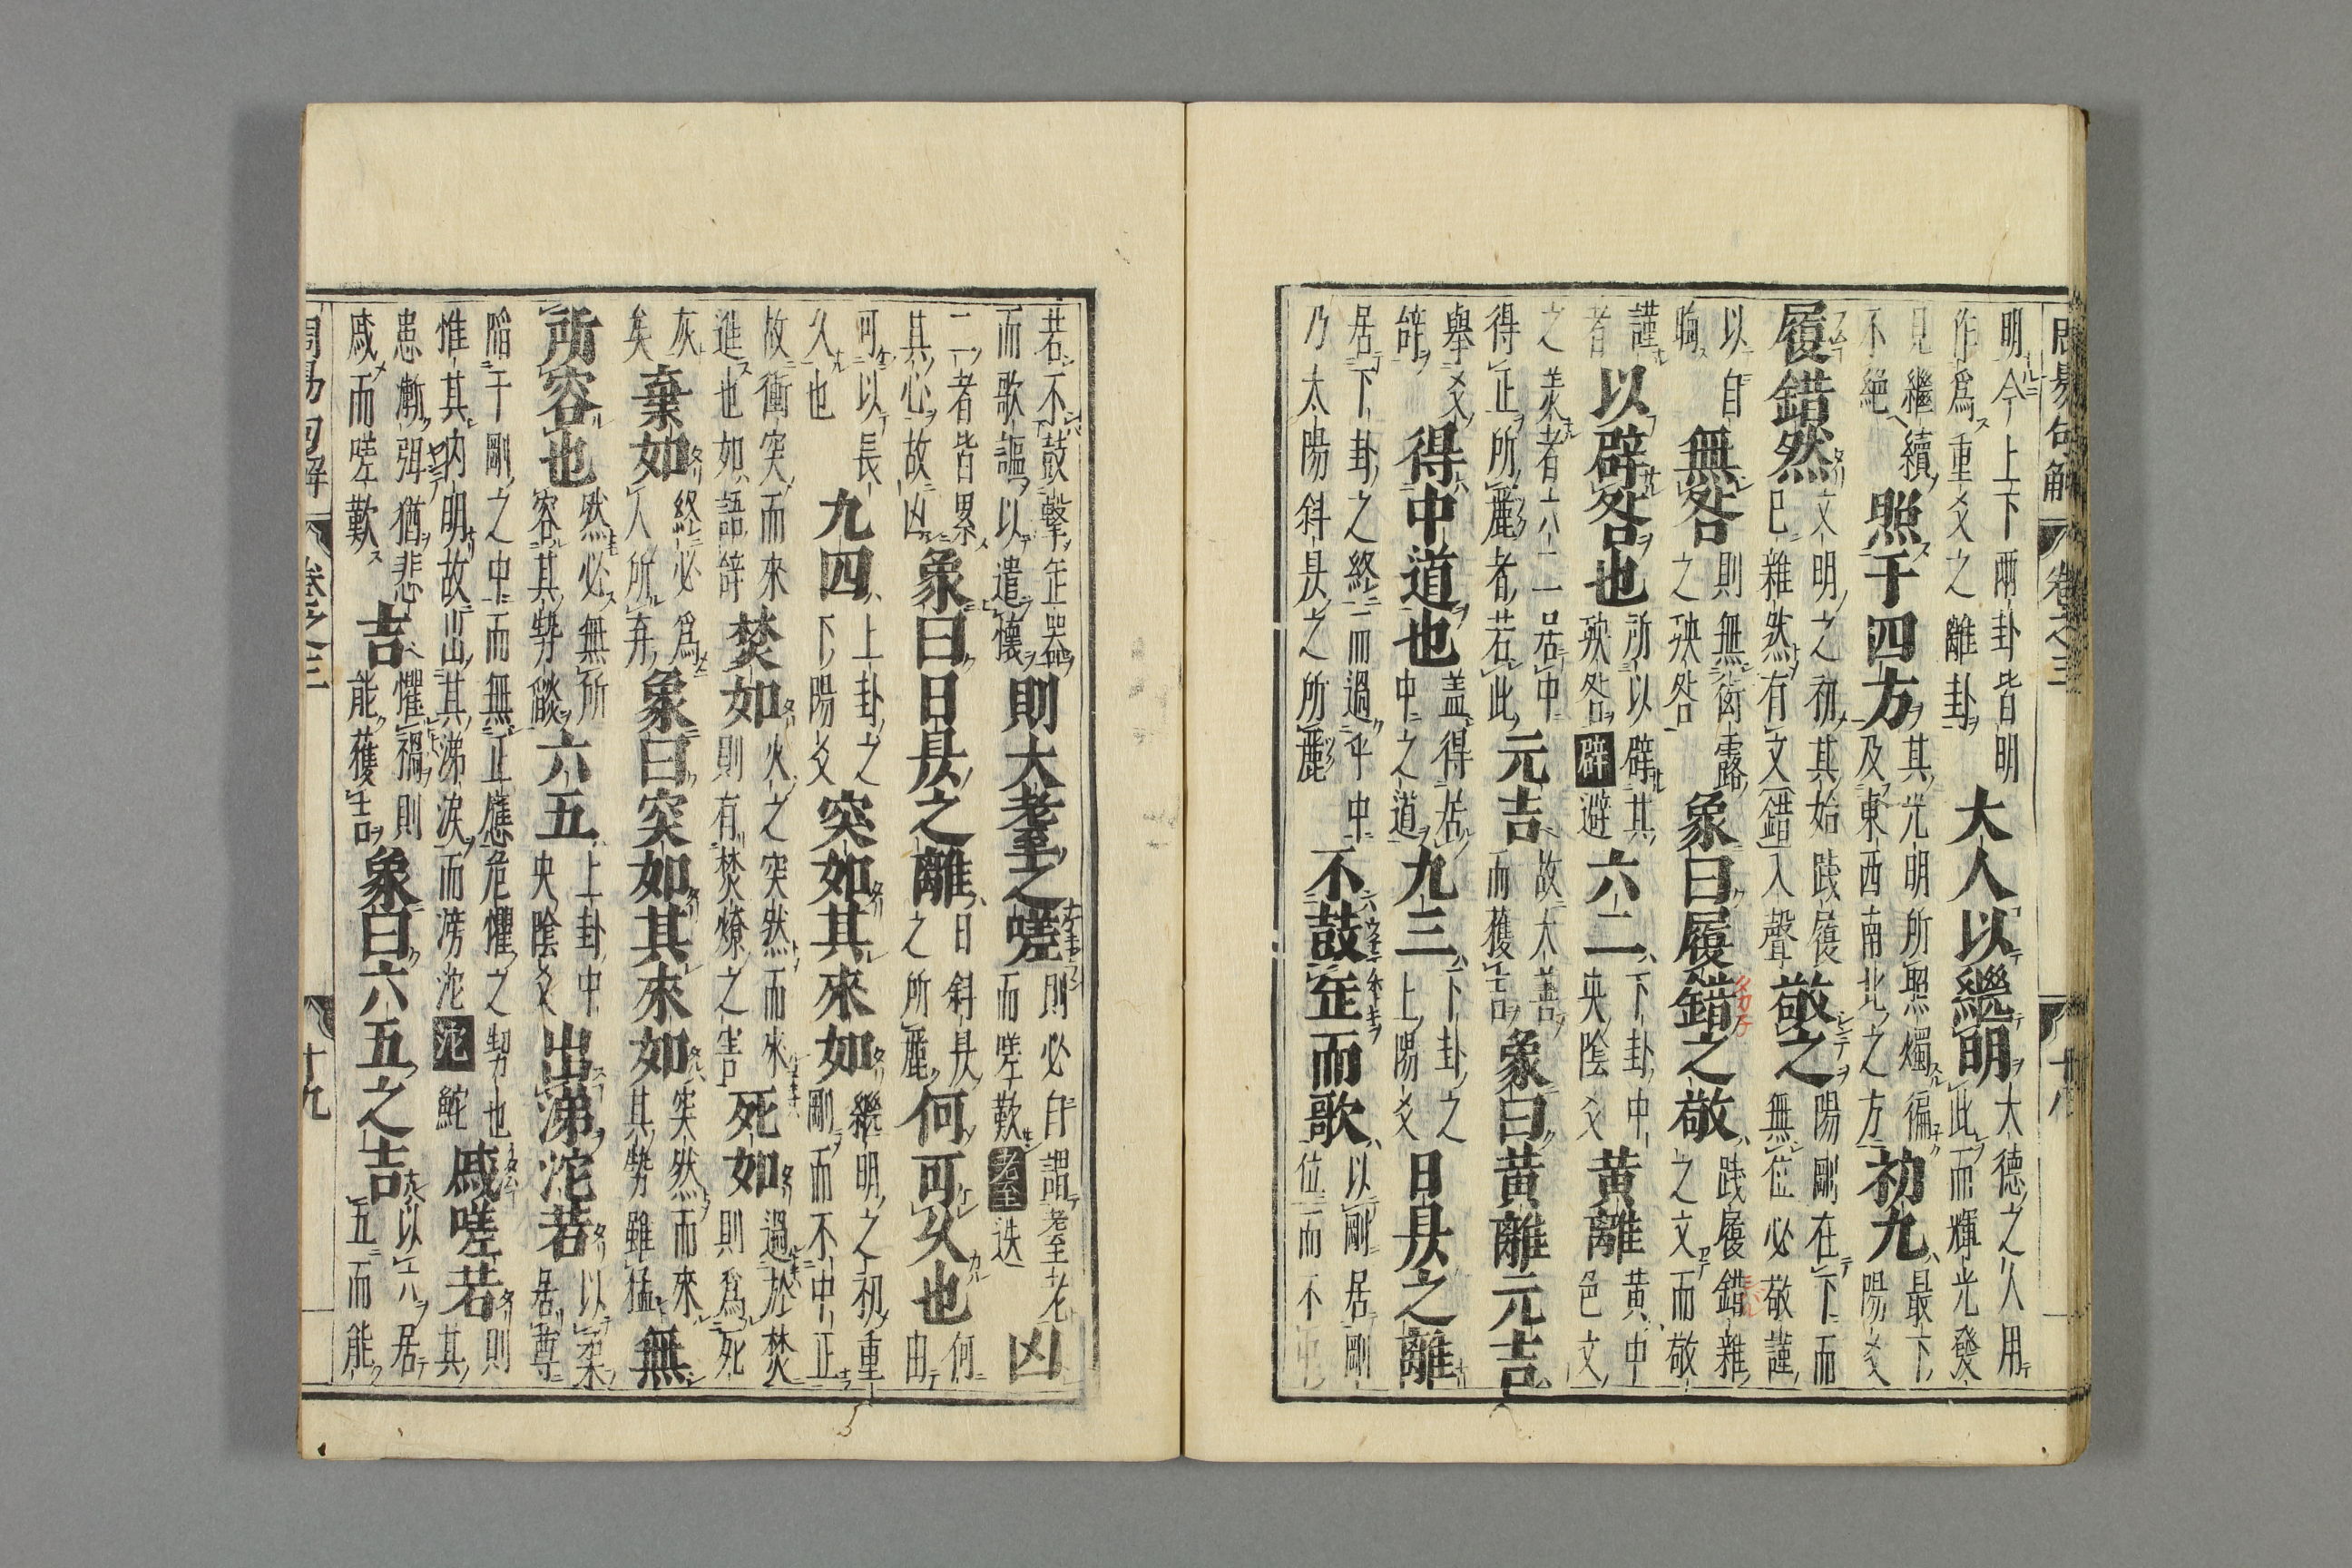 周易句解 卷之三 十八
明今上下兩卦皆明作爲重爻之離卦大人以繼明大德之人用此而輝光發
見繼續不絕照于四方其光明所照燭徧及東西南北之方初九最下陽爻
履錯然文明之初其始踐履已雜然有文錯入聲敬之陽剛在下而無位必敬謹
以自晦無咎則無衒露之殃咎象曰履錯之敬踐履錯雜之文而敬
謹者以辟咎也所以辟其殃咎辟避六二下卦中央陰爻黃離黃中色文
之美者六二居中得正所麗者若此元吉故大善而獲吉象曰黃離元吉
舉爻辭得中道也盖得居中之道九三下卦之上陽爻日昃之離
居下卦之終而過乎中乃太陽斜昃之所麗不鼓缶而歌以剛居剛位而不
若不鼓擊缶器而歌謳以遣懷則大耋之嗟則必自謂耋老而嗟歎耋迭凶
二者皆累其心故凶象曰日昃之離日斜昃之所麗何可久也何由
可以長久也九四上卦之下陽爻突如其來如繼明之初重剛而不中正
故衝突而來進也如語辭焚如火之突然而來則有焚燎之害死如過於焚則爲死
灰矣棄如終必爲人所弃象曰突如其來如突然而來其勢雖猛無
所容也然必無所容其勢燄六五上卦中央陰爻出涕沱若以柔居尊
陷于剛之中而無正應危懼之勢也惟其内明故出其涕淚而滂沱沱鮀戚嗟若則其
患漸弭猶悲戚而嗟歎吉懼禍則能獲吉象曰六五之吉以六居五而能
周易句解 卷之三 十九